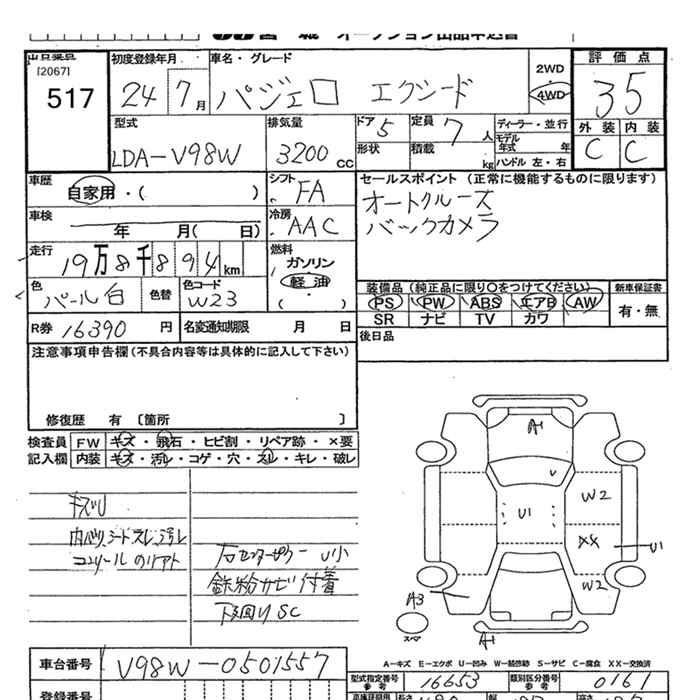 オークション出品申込書
出品番号
[2067]
517
初度登録年月
24年7月
車名・グレード
パジェロ エクシード
2WD
4WD
評価点
3.5
外装 内装
C C
型式
LDA-V98W
排気量
3200cc
ドア 5
形状
定員 7人
積載 kg
ディーラー・並行
モデル年式 年
ハンドル 左・右
車歴
自家用・( )
シフト
FA
セールスポイント (正常に機能するものに限ります)
オートクルーズ
バックカメラ
車検
年 月( 日)
冷房
AAC
走行
19万8千894km
燃料
ガソリン
軽油
( )
色
パール白
色替
色コード
W23
装備品 (純正品に限り○をつけてください)
PS PW ABS エアB AW
SR ナビ TV カワ
新車保証書
有・無
R券 16390円
名変通知期限 月 日
後日品
注意事項申告欄(不具合内容等は具体的に記入して下さい)
修復歴 有 [箇所 ]
検査員記入欄
FW キズ・飛石・ヒビ割・リペア跡・×要
内装 キズ・汚レ・コゲ・穴・スレ・キレ・破レ
キズU
内張シートスレ、汚レ
右センターピラー U小
鉄粉サビ付着
下廻りSC
A1
U1
W2
XX
U1
W2
A3
スペア
A1
車台番号
V98W-0501557
A-キズ E-エクボ U-凹み W-補修跡 S-サビ C-腐食 XX-交換済
型式指定番号 16653
類別区分番号 0161
登録番号